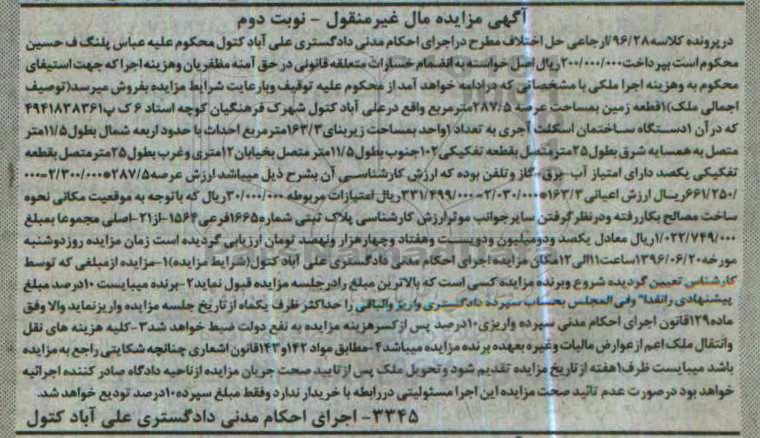 آگهی مزایده مال غیرمنقول - نوبت دوم
درپرونده کلاسه ۹۶/۲۸ارجاعی حل اختلاف مطرح دراجرای احکام مدنی دادگستری علی آباد کتول محکوم علیه عباس پلنگ ف حسین
محکوم است بپرداخت ۲۰۰/۰۰۰/۰۰۰ریال اصل خواسته به انضمام خسارات متعلقه قانونی در حق آمنه مظفریان وهزینه اجرا که جهت استیفای
محکوم به وهزینه اجرا ملکی با مشخصاتی که درادامه خواهد آمد از محکوم علیه توقیف وبارعایت شرایط مزایده بفروش میرسد(توصیف
اجمالی ملک)۱قطعه زمین بمساحت عرصه ۲۸۷/۵مترمربع واقع درعلی آباد کتول شهرک فرهنگیان کوچه استاد ۶ ک پ۴۹۴۱۸۳۸۳۶۱
که درآن ۱دستگاه ساختمان اسکلت آجری به تعداد ۱واحد بمساحت زیربنای۱۶۳/۳مترمربع احداث با حدود اربعه شمال بطول۱۱/۵متر
متصل به همسایه شرق بطول۲۵مترمتصل بقطعه تفکیکی۱۰۲جنوب بطول۱۱/۵متر متصل بخیابان ۱۲متری وغرب بطول۲۵مترمتصل بقطعه
تفکیکی یکصد دارای امتیاز آب-برق-گاز وتلفن بوده که ارزش کارشناسی آن بشرح ذیل میباشد ارزش عرصه۲۸۷/۵*۲/۳۰۰/۰۰۰=
۶۶۱/۲۵۰/ریال ارزش اعیانی ۱۶۳/۳*۲/۰۳۰/۰۰۰=۳۳۱/۴۹۹/۰۰۰ریال امتیازات مربوطه ۳۰/۰۰۰/۰۰۰ریال که باتوجه به موقعیت مکانی نحوه
ساخت مصالح بکاررفته ودرنظرگرفتن سایرجوانب موثرارزش کارشناسی پلاک ثبتی شماره۱۶۶۵فرعی۱۵۶۴-از۲۱-اصلی مجموعا بمبلغ
۱/۰۲۲/۷۴۹/۰۰۰ریال معادل یکصد ودومیلیون ودویست وهفتاد وچهارهزار ونهصد تومان ارزیابی گردیده است زمان مزایده روزدوشنبه
مورخه۱۳۹۶/۰۶/۲۰ساعت۱۱الی۱۲مکان مزایده اجرای احکام مدنی دادگستری علی آباد کتول(شرایط مزایده)۱-مزایده ازمبلغی که توسط
کارشناس تعیین گردیده شروع وبرنده مزایده کسی است که بالاترین مبلغ رادرجلسه مزایده قبول نماید۲-برنده میبایست ۱۰درصد مبلغ
پیشنهادی رانقدا" رفی المجلس بحساب سپرده دادگستری واریز والباقی را حداکثر ظرف یکماه ازتاریخ جلسه مزایده واریزنماید والا وفق
ماده۱۲۹قانون اجرای احکام مدنی سپرده واریزی۱۰درصد پس ازکسرهزینه مزایده به نفع دولت ضبط خواهد شد۳-کلیه هزینه های نقل
وانتقال ملک اعم ازعوارض مالیات وغیره بعهده برنده مزایده میباشد۴-مطابق مواد ۱۴۲و۱۴۳قانون اشعاری چنانچه شکایتی راجع به مزایده
باشد میبایست ظرف۱هفته از تاریخ مزایده تقدیم شود وتحویل ملک پس از تایید صحت جریان مزایده ازناحیه دادگاه صادر کننده اجرائیه
خواهد بود درصورت عدم تائید صحت مزایده این اجرا مسئولیتی دررابطه با خریدار ندارد وفقط مبلغ سپرده۱۰درصد تودیع خواهد شد.
۳۳۴۵- اجرای احکام مدنی دادگستری علی آباد کتول